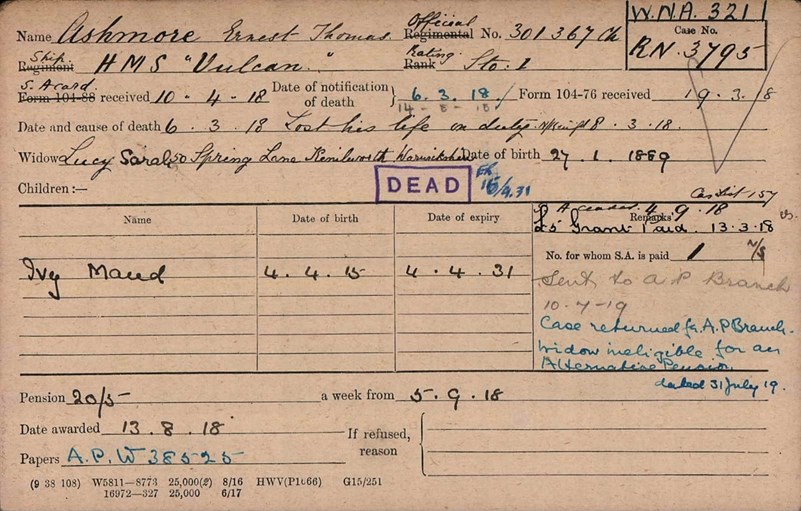 W.N.A. 321
Case No.
RN. 3795
Name Ashmore Ernest Thomas Official Regimental No. 301367 Ch
Ship. Regiment HMS "Vulcan." Rating. Rank Sto. 1
Form 104-88 received 10 - 4 - 18 Date of notification of death } 6. 3. 18. Form 104-76 received 19. 3. 18
14 - 8 - 18
Date and cause of death 6. 3. 18 Lost his life on duty 8. 3. 18.
Widow Lucy Sarah 50 Spring Lane Kenilworth Warwickshire Date of birth 27. 1. 1889
Children :—
DEAD
15/9.31
Cas List 157
4. 9. 18
Remarks
£5 Grant Paid. 13.3.18
Name Date of birth Date of expiry
No. for whom S.A. is paid 1
Ivy Maud 4. 4. 15 4. 4. 31
Sent to A P Branch
10-7-19
Case returned fr. A.P Branch.
Widow ineligible for an
Alternative Pension
dated 31 July 19.
Pension 20/5 a week from 5. 9. 18
Date awarded 13. 8. 18
If refused, reason
Papers A.P.W 38525
(9 38 108) W5811—8773 25,000(2) 8/16 HWV(P1666) G15/251
16972—327 25,000 6/17